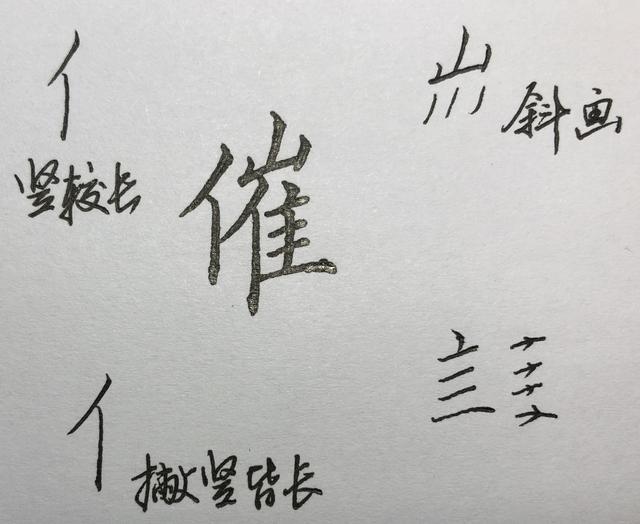 亻
山川
斜画
竖较长
催
亻
撇竖皆长